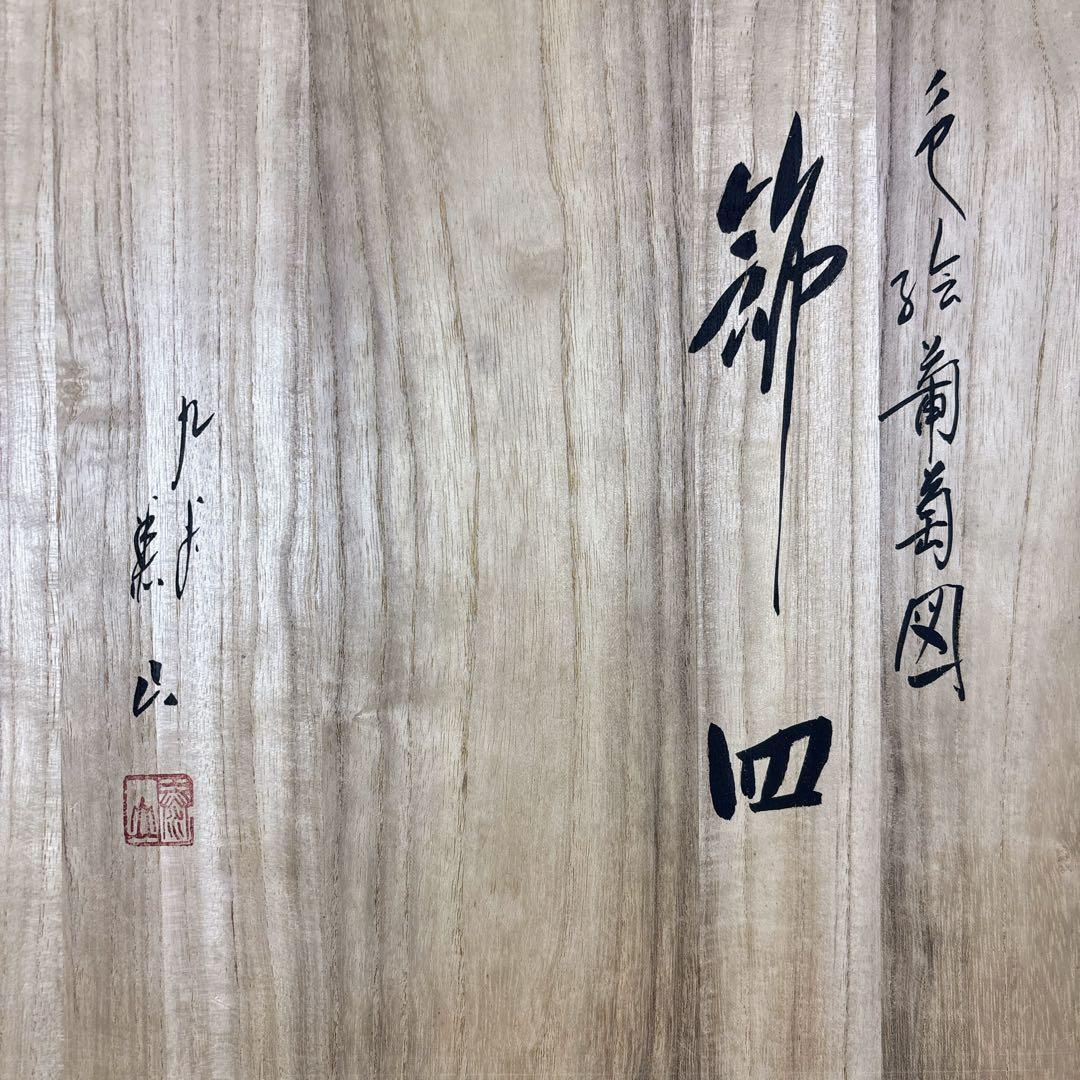 色絵葡萄図
飾皿
九谷
山